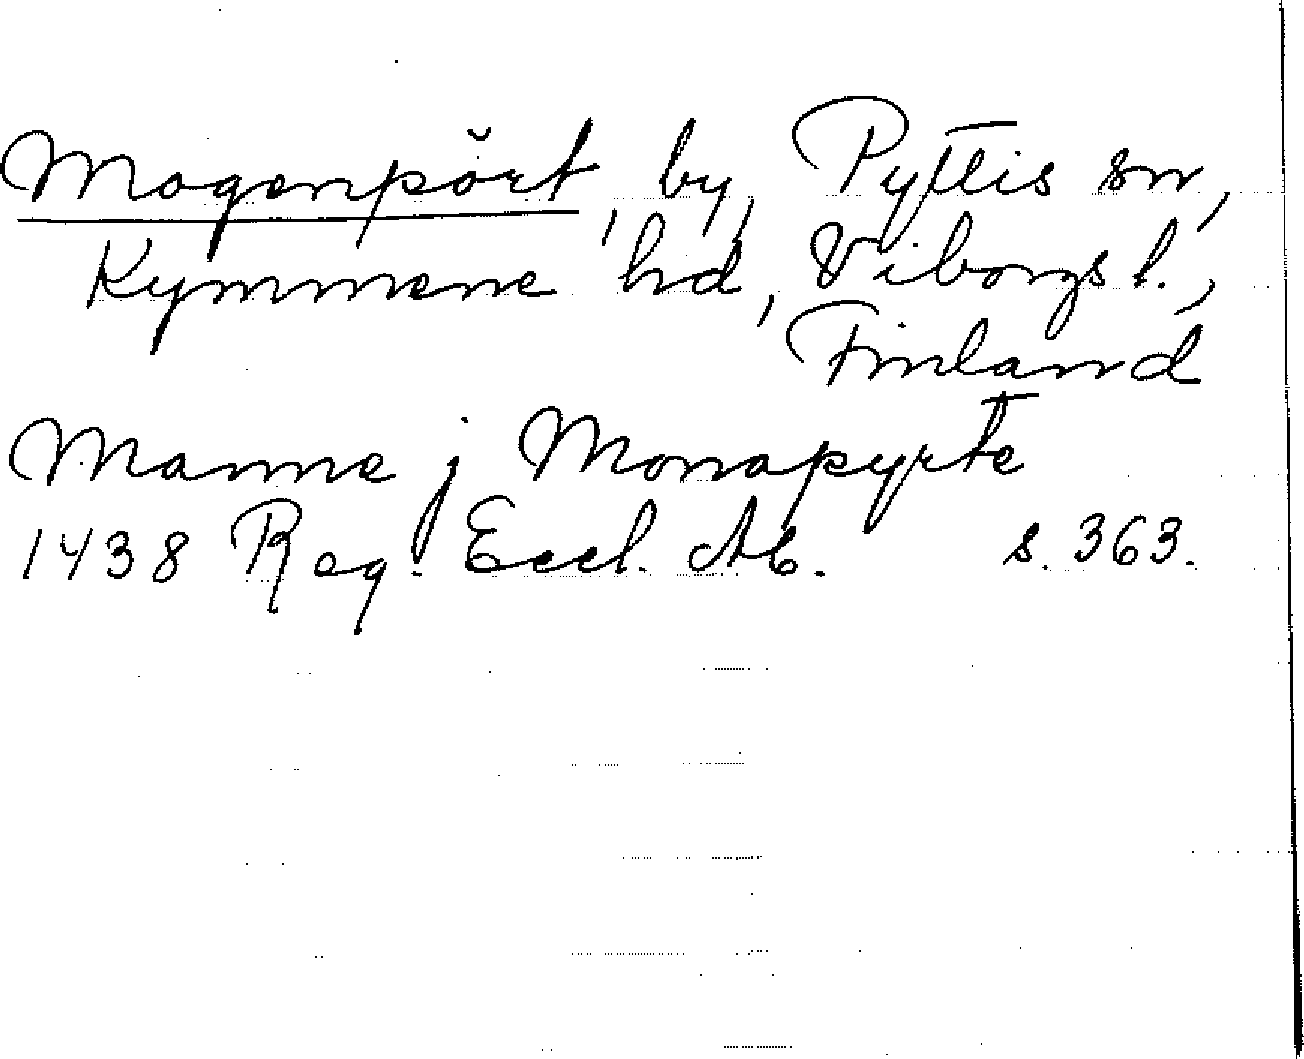 Mogenpört, by, Pyttis sn,
Kymmene hd, Viborgs l.,
Finland
Manne j Monapyrte
1438 Reg. Eccl. Ab. s. 363.